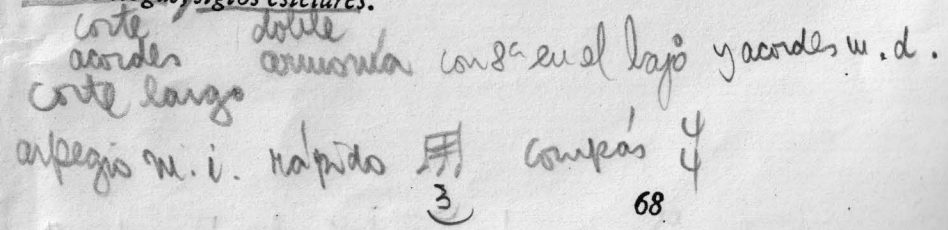 y siglos estelares.
corte doble
acordes armonía con 8ª en el bajo y acordes m. d.
corte largo
arpegio m. i. rápido compás 4/4
3
68